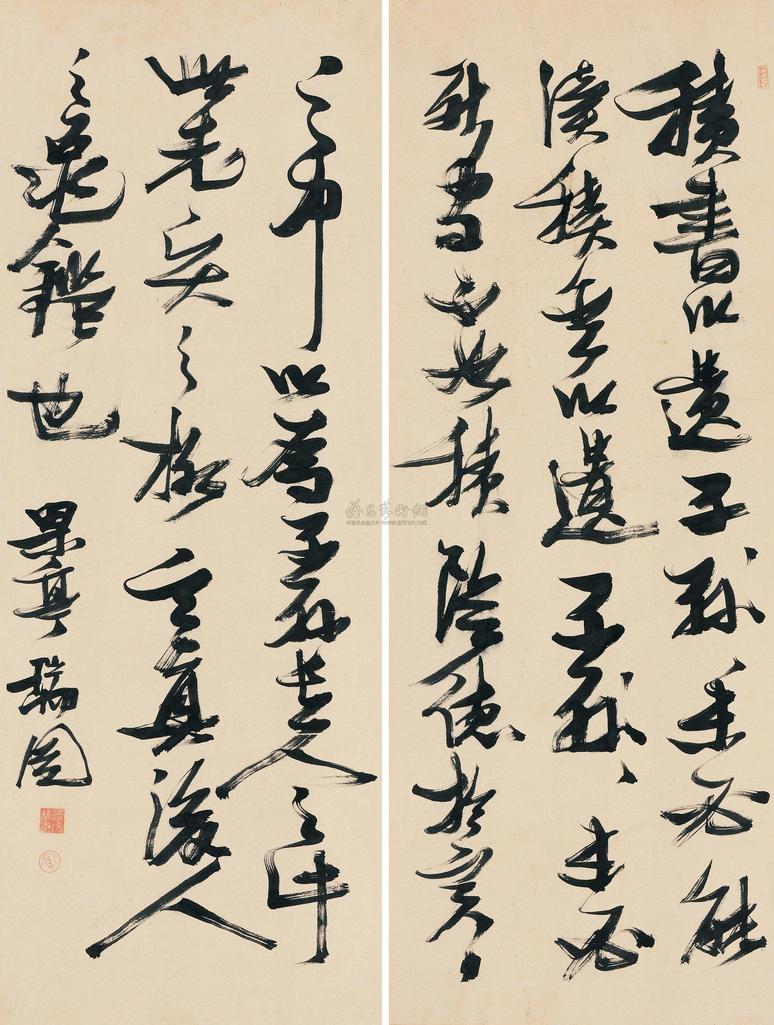 積書以遺子孫〻未必能
讀積金以遺子孫〻未必
不如積陰德於冥〻
之中以為子孫長久之計
此先賢之格言真後人
之龜鑑也 果亭瑞圖